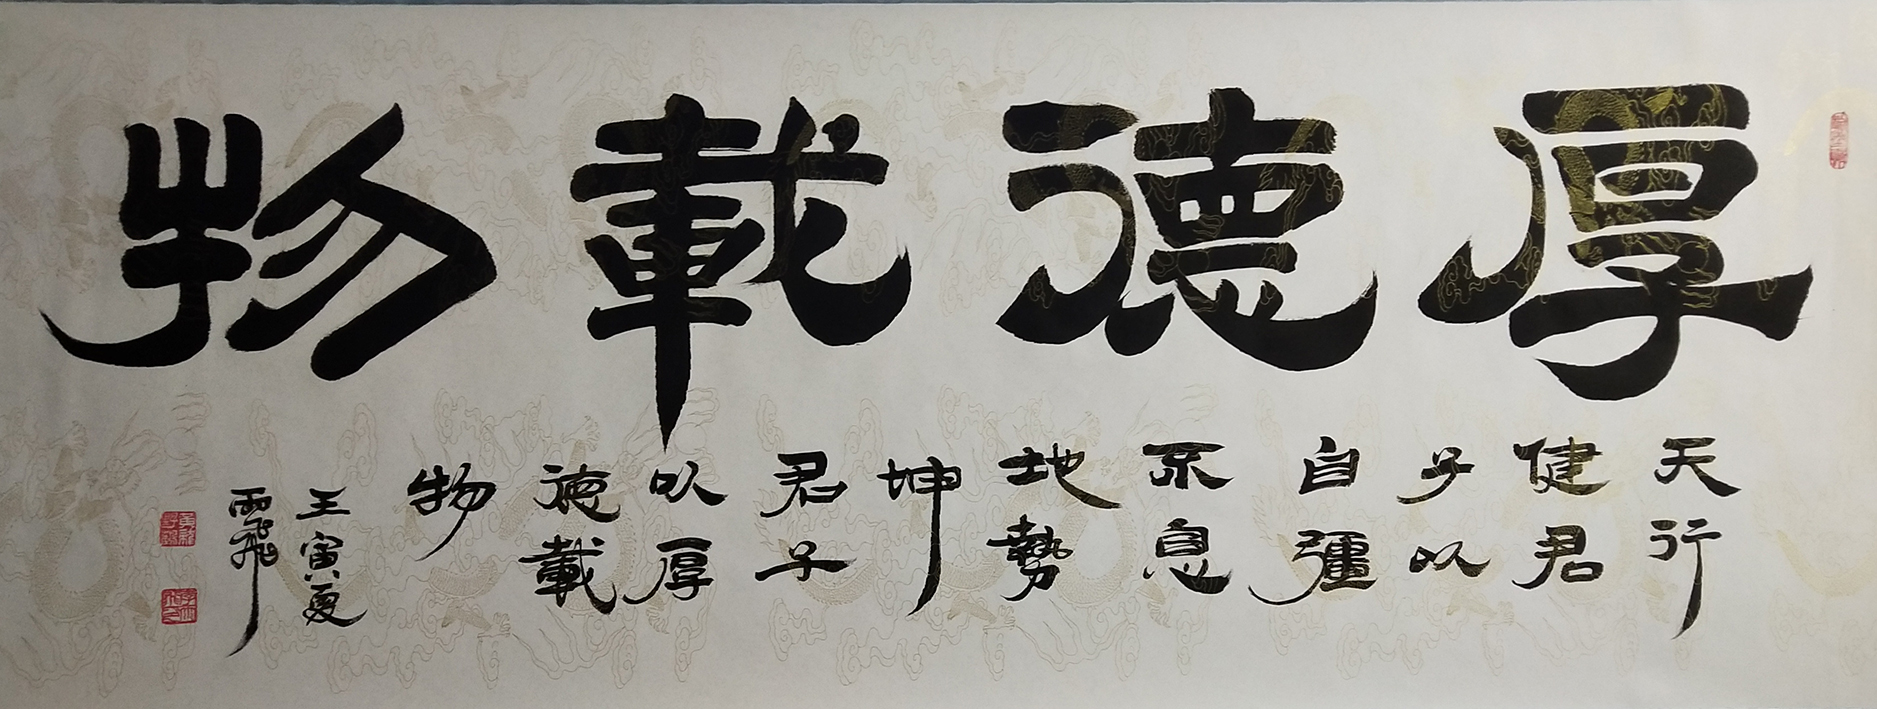 厚德載物
天行
健君
子以
自彊
不息
地勢
坤
君子
以厚
德載
物
壬寅夏
雨飛